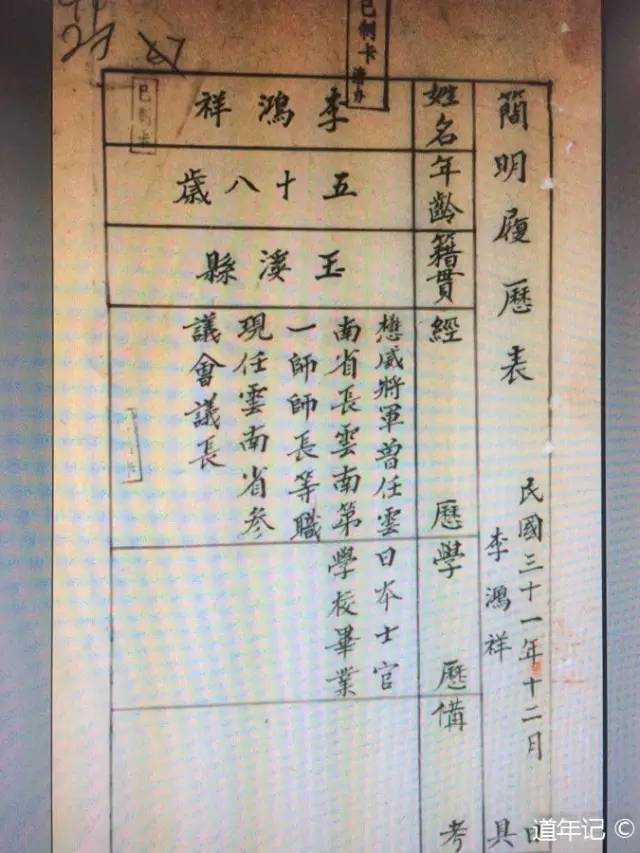 簡明履歷表
民國三十一年十二月 日
李鴻祥 具
姓名
李鴻祥
年齡
五十八歲
籍貫
玉溪縣
經歷
懋威將軍曾任雲
南省長雲南第
一師師長等職
現任雲南省參
議會議長
學歷
日本士官
學校畢業
備考
已制卡
已制卡
道年记 ©